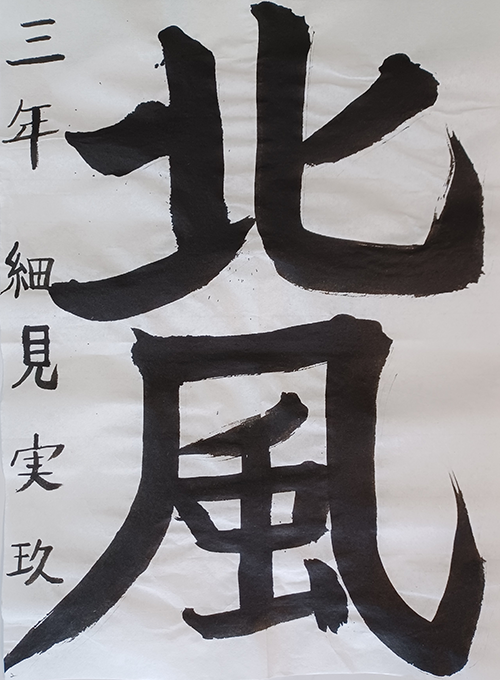 北風
三年 細見実玖